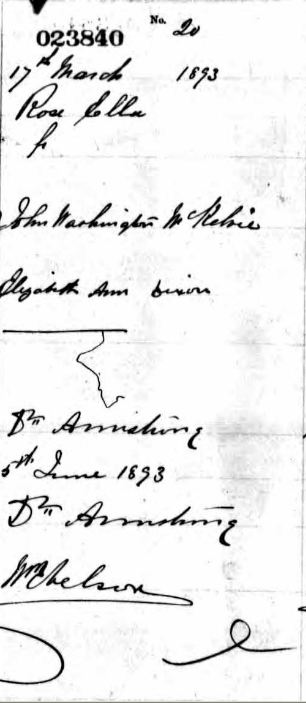 No. 20
023840
17th March 1893
Rose Ella
f
John Washington McKelvie
Elizabeth Ann Dixon
Dr Armstrong
5th June 1893
Dr Armstrong